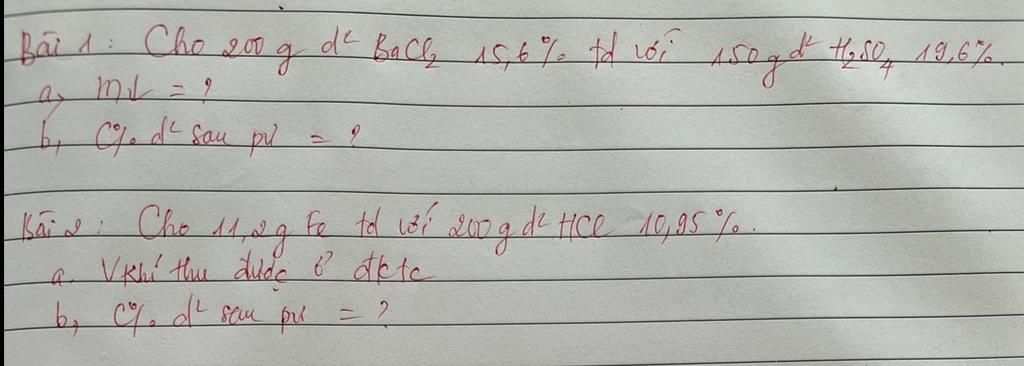 Bài 1: Cho 200 g d² BaCl₂ 15,6% td với 150g d² H₂SO₄ 19,6%.
a, m↓ = ?
b, C% d² sau pứ = ?
Bài 2: Cho 11,2g Fe td với 200g d² HCl 10,95%.
a. V khí thu được ở đktc
b, C% d² sau pứ = ?